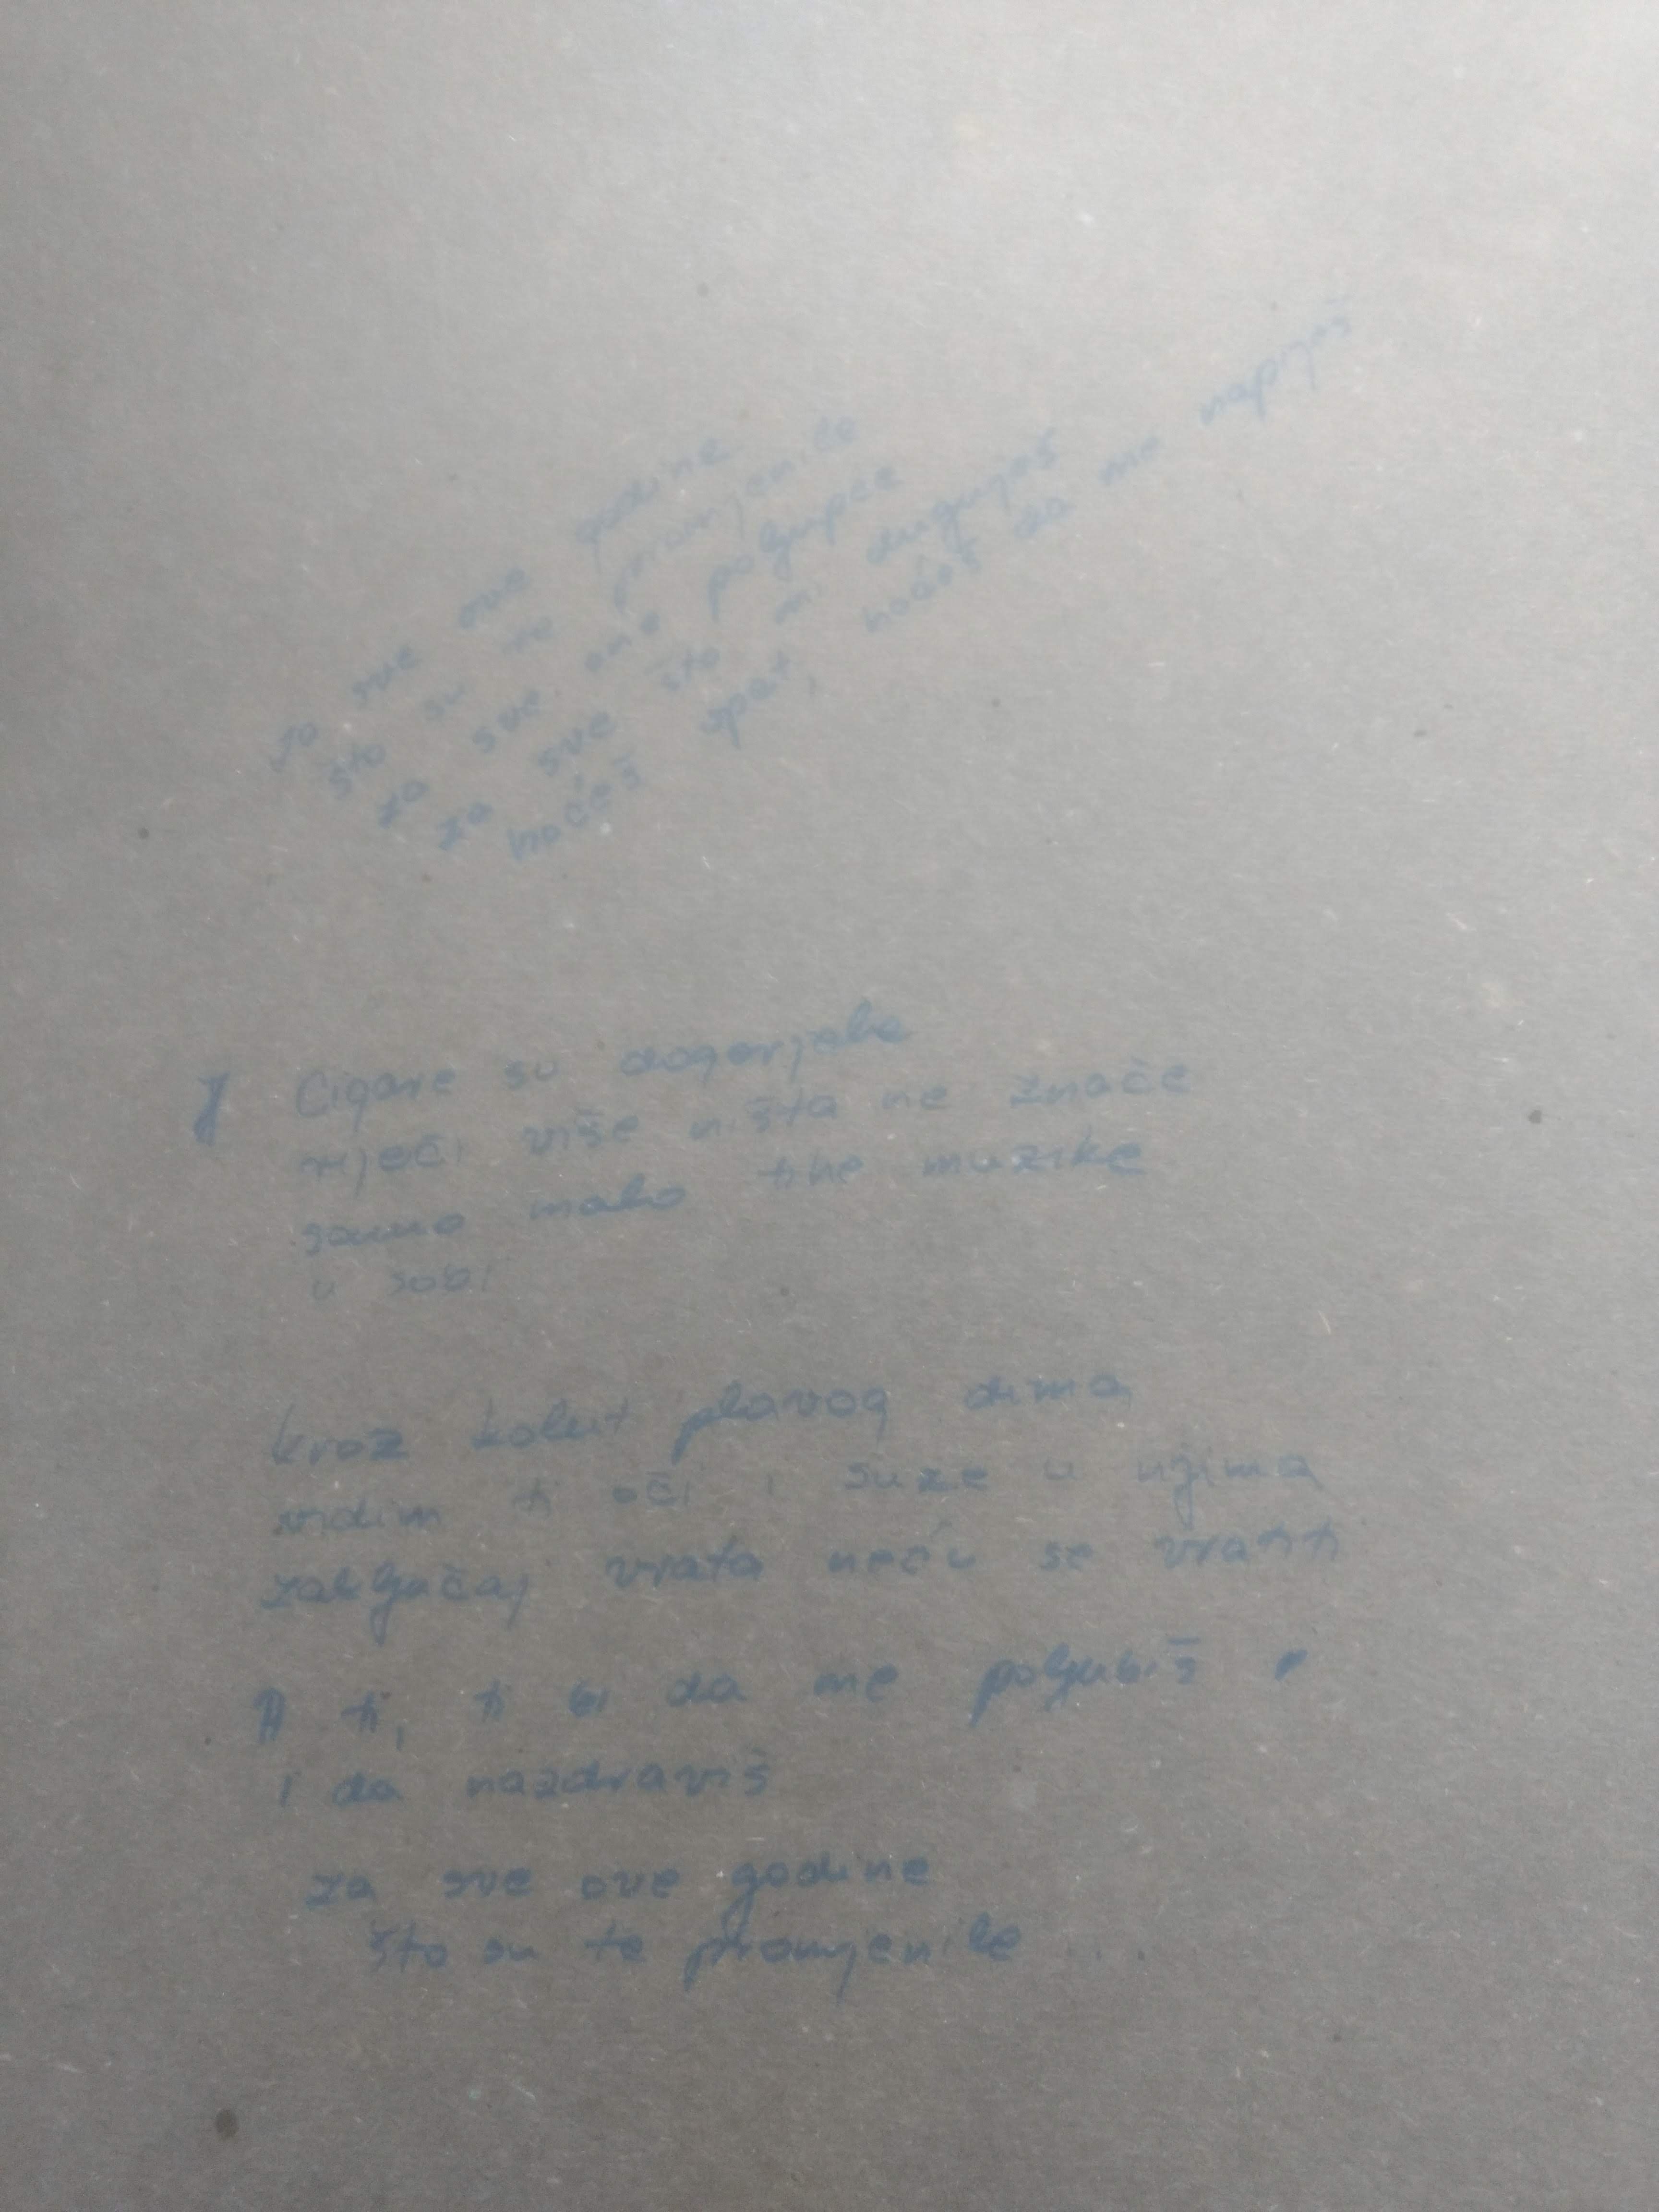 za sve ove godine
što su te promjenile
za sve one poljupce
za sve što mi duguješ
hoćeš opet, hoćeš da me napiješ
Cigare su dogorjele
riječi više ništa ne znače
samo malo tihe muzike
u sobi
kroz kolut plavog dima
vidim ti oči i suze u njima
zaključaj vrata neću se vratiti
A ti, ti bi da me poljubiš
i da nazdraviš
za sve ove godine
što su te promjenile ...